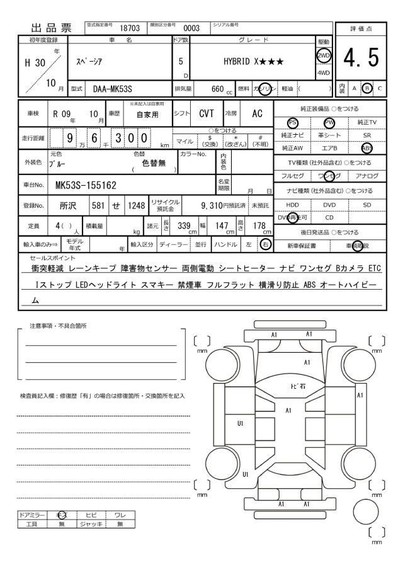 出品票 型式指定番号 18703 類別区分番号 0003 シリアル番号
評価点
初年度登録 車名 ドア数 グレード 駆動
H 30年 10月 スペーシア 5 D HYBRID X★★★ 2WD 4WD 4.5
型式 DAA-MK53S 排気量 660 cc 燃料 ガソリン 軽油 ( ) 内装 A B C
車検 R 09年 10月 車歴 ※未記入は自家用 自家用 シフト CVT 冷房 AC
純正装備品 ○をつける
PS PW 純正TV
走行距離 9万 6千 300 km ○をつける マイル $ (交換) * (改ざん) # (不明)
純正ナビ 革シート SR
純正AW エアB ABS
外装色 元色 ブルー 色替 色替無 カラーNo. 内装色
TV種類(社外品含む) ○をつける
フルセグ ワンセグ アナログ
車台No. MK53S-155162 名変期限 月 日
ナビ種類(社外品含む) ○をつける
登録No. 所沢 581 せ 1248 リサイクル預託金 9,310円 預託済 未預託
HDD DVD SD
DVD再生可 CD
定員 4( )人 積載量 kg 諸元 長さ 339 cm 幅 147 cm 高さ 178 cm
後日発送品 ○をつける
輸入車のみ⇒ モデル年式 年 輸入区分 ディーラー 並行 ハンドル 左 右
新車保証書 車輌取説
セールスポイント
衝突軽減 レーンキープ 障害物センサー 両側電動 シートヒーター ナビ ワンセグ Bカメラ ETC
Iストップ LEDヘッドライト スマキー 禁煙車 フルフラット 横滑り防止 ABS オートハイビー
ム
注意事項・不具合箇所
検査員記入欄:修復歴「有」の場合は修復箇所・交換箇所を記入
mm
mm
A1
A1
トビ石
A1
U1
U1
A1
A1
A1
mm
mm
ドアミラー キズ ヒビ ワレ
工具 無 ジャッキ 無